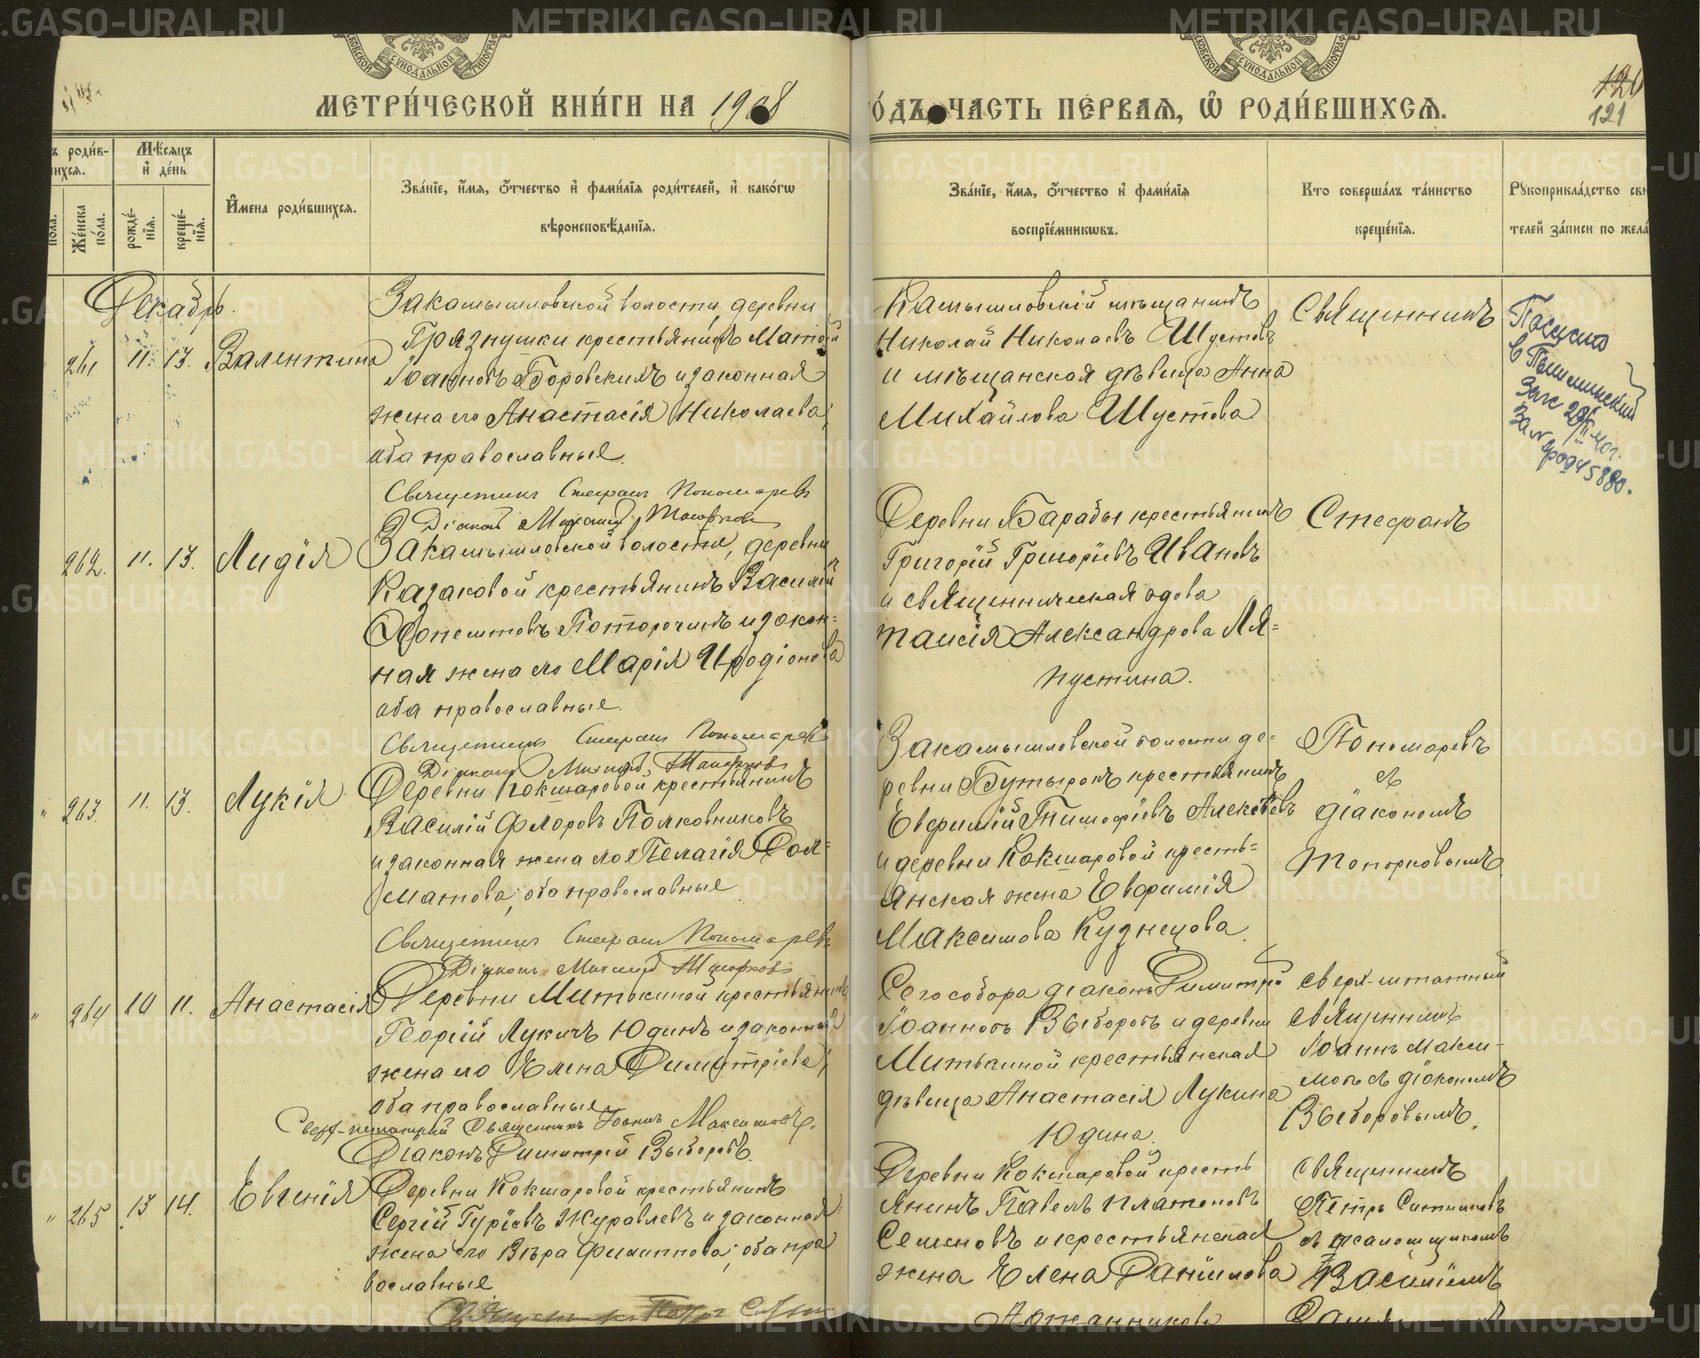 МЕТРИ́ЧЕСКОЙ КНИ́ГИ НА 1908
ЧАСТЬ ПЕ́РВАЯ, Ѡ҆ РОДИ́ВШИХСЯ.
120
121
Мѣ́сяцъ и҆ де́нь
Же́нска по́ла.
рожде́нїя.
креще́нїя.
И҆мена роди́вшихся.
Зва́нїе, и҆́мя, ѻ҆́тчество и҆ фами́лїя роди́телей, и҆ како́гѡ
вѣроисповѣ́данїя.
Зва́нїе, и҆́мя, ѻ҆́тчество и҆ фами́лїя
воспрїе́мникѡвъ.
Кто соверша́лъ та́инство
креще́нїя.
Рꙋкоприкла́дство
Декабрь.
261 11. 13. Валентина
Закамышловской волости, деревни
Грязнушки крестьянинъ
Іоанновъ Боровскихъ и законная
жена его Анастасія Николаева;
оба православные.
Священникъ Стефанъ Пономаревъ
Діаконъ Михаилъ Топорковъ
Камышловскій мѣщанинъ
Николай Николаевъ Шустовъ
и мѣщанская дѣвица Анна
Михайлова Шустова
Священникъ
262. 11. 13. Лидія
Закамышловской волости, деревни
Казаковой крестьянинъ Василій
и закон-
ная жена его Марія Иродіонова
оба православные.
Священникъ Стефанъ Пономаревъ
Діаконъ Михаилъ Топорковъ
Деревни Барабы крестьянинъ
Григорій Григоріевъ Ивановъ
и священническая вдова
Таисія Александрова Ля-
пустина.
Стефанъ
263. 11. 13. Лукія
Деревни Кокшаровой крестьянинъ
Василій Флоровъ Полковниковъ
и законная жена его Пелагія Дол-
матова; оба православные
Священникъ Стефанъ Пономаревъ
Діаконъ Михаилъ Топорковъ
Закамышловской волости де-
ревни Бутырокъ крестьянинъ
Евфимій Тимофіевъ Алексѣевъ
и деревни Кокшаровой кресть-
янская жена Евфимія
Максимова Кузнецова.
Пономаревъ
съ
діакономъ
Топорковымъ
264 10 11. Анастасія
Деревни Митькиной крестьянинъ
Георгій Лукичъ Юдинъ и законная
жена его Елена Димитріева;
оба православные
Сверх-штатный Священникъ Іоаннъ Максимовъ.
Діаконъ Димитрій Выборовъ.
Сего собора діаконъ Димитрій
Іоанновъ Выборовъ и деревни
Митькиной крестьянская
дѣвица Анастасія Лукина
Юдина.
Сверх-штатный
священникъ
Іоаннъ Макси-
мовъ съ діакономъ
Выборовымъ.
265 13 14. Евгенія
Деревни Кокшаровой крестьянинъ
Сергій Гуріевъ Журавлевъ и законная
жена его Вѣра Филиппова; оба пра
вославные
Деревни Кокшаровой кресть
янинъ Павелъ Платоновъ
Семеновъ и крестьянская
жена Елена Даніилова
священникъ
Петръ Ситниковъ
съ псаломщикомъ
Василіемъ
METRIKI.GASO-URAL.RU